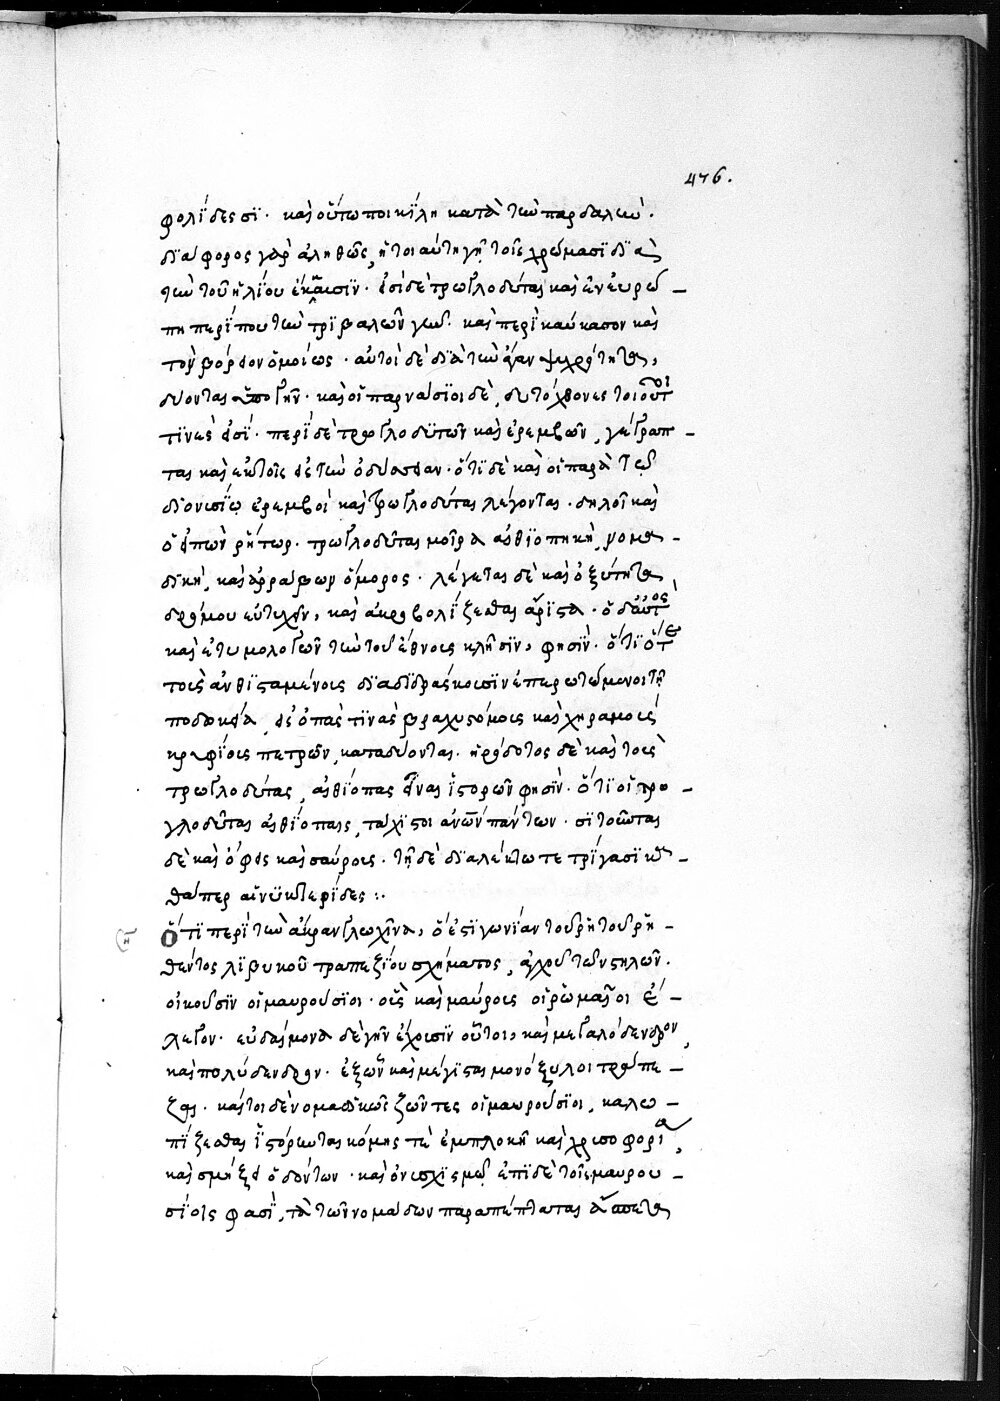 476.
φολίδεσσϊ· καὶ οὕτω ποικίλη κατὰ τὴν παρδαλιν·
διάφορος γὰρ ἀληθῶς, ἤτοι αὐτὴ γῆ τοῖς χρώμασϊ διὰ
τὴν τοῦ ἡλίου ἔκκαυσϊν· εἰσὶ δὲ τρωγλοδύται καὶ ἐν ἐυρώ
πη περί που τὴν τριβαλῶν γῆν· καὶ περὶ καύκασον καὶ
τὸν βόρειον ὁμοίως· αὐτοὶ δὲ διὰ τὴν ἄγαν ψυχρότητα,
δύονται ὑπὸ γῆν· καὶ οἱ παρνάσϊοι δὲ, αυτόχθονες τοιοῦτοί
τϊνές εἰσί· περὶ δὲ τρωγλοδυτῶν καὶ ἐρεμβῶν, γέγραπ
ται καὶ ἐν τοῖς εἰς τὴν ὀδύσσειαν· ὅτι δὲ καὶ οἱ παρὰ τῷ
διονυσίῳ ἐρεμβοὶ καὶ τρωγλοδύται λέγονται· δηλοῖ καὶ
ὁ εἰπὼν ῥήτωρ· τρωγλοδῦται μοῖρα αἰθϊοπηκὴ, νομα
δϊκὴ, καὶ ἀράβων ὅμορος· λέγεται δὲ καὶ ὀξύτητα
δρόμου εὐτυχεῖν, καὶ ἀκροβολίζεσθαι ἄριστα· ὁ δ' αὐτὸς
καὶ ἐτυμολογῶν τὴν τοῦ ἔθνους κλῆσϊν, φησϊν· ὅτι ὅτε
τοὺς ἀνθισταμένοις διαδϊδράσκουσϊν ἐπερωτώμενοι τῆ
ποδωκεία, εἰς ὀπάς τϊνὰς βραχυστόμοις καὶ χηραμοὺς
κρυφίοις πετρῶν, καταδύονται· ἡρόδοτος δὲ καὶ τοὺς
τρωγλοδύτας, αἰθίοπας εἶναι ἱστορῶν φησϊν· ὅτϊ οἱ τρο
γλοδῦται αἰθίοπαις, τάχϊστοι ἀνων πάντων· σϊτοῦνται
δὲ καὶ ὄφεις καὶ σαύροις· τῆ δὲ διαλέκτω τετρίγασϊ κα
θάπερ αἱ νυκτερίδες :·
Ὅτϊ περὶ τὴν ἄκραν γλωχῖνα, ὅ ἐστϊ γωνίαν τοῦ ῥητοῦ ῥη
θέντος λϊβυκοῦ τραπεζίου σχήματος, ἀγχοῦ τῶν στηλῶν·
οἰκοῦσϊν οἱ μαυρούσϊοι· οὓς καὶ μαύρους οἱ ῥωμαῖοι ἔ
λεγον· εὐδαίμονα δὲ γῆν ἔχουσϊν οὗτοι, καὶ μεγαλόδενδρον,
καὶ πολύδενδρον· ἐξ ὧν καὶ μέγισται μονόξυλοι τράπε
ζαι· καίτοι δὲ νομαδικῶς ζῶντες οἱ μαυρούσϊοι, καλω
πίζεσθαι ἱστόρωνται κόμης τὲ ἐμπλοκῆ καὶ χρυσοφορία,
καὶ σμήξει ὀδόντων· καὶ ὀνυχϊσμῷ ἐπϊ δὲ τοῖς μαυρου
σίοις φασὶ, τὰ τῶν νομάδων παραπέπταται